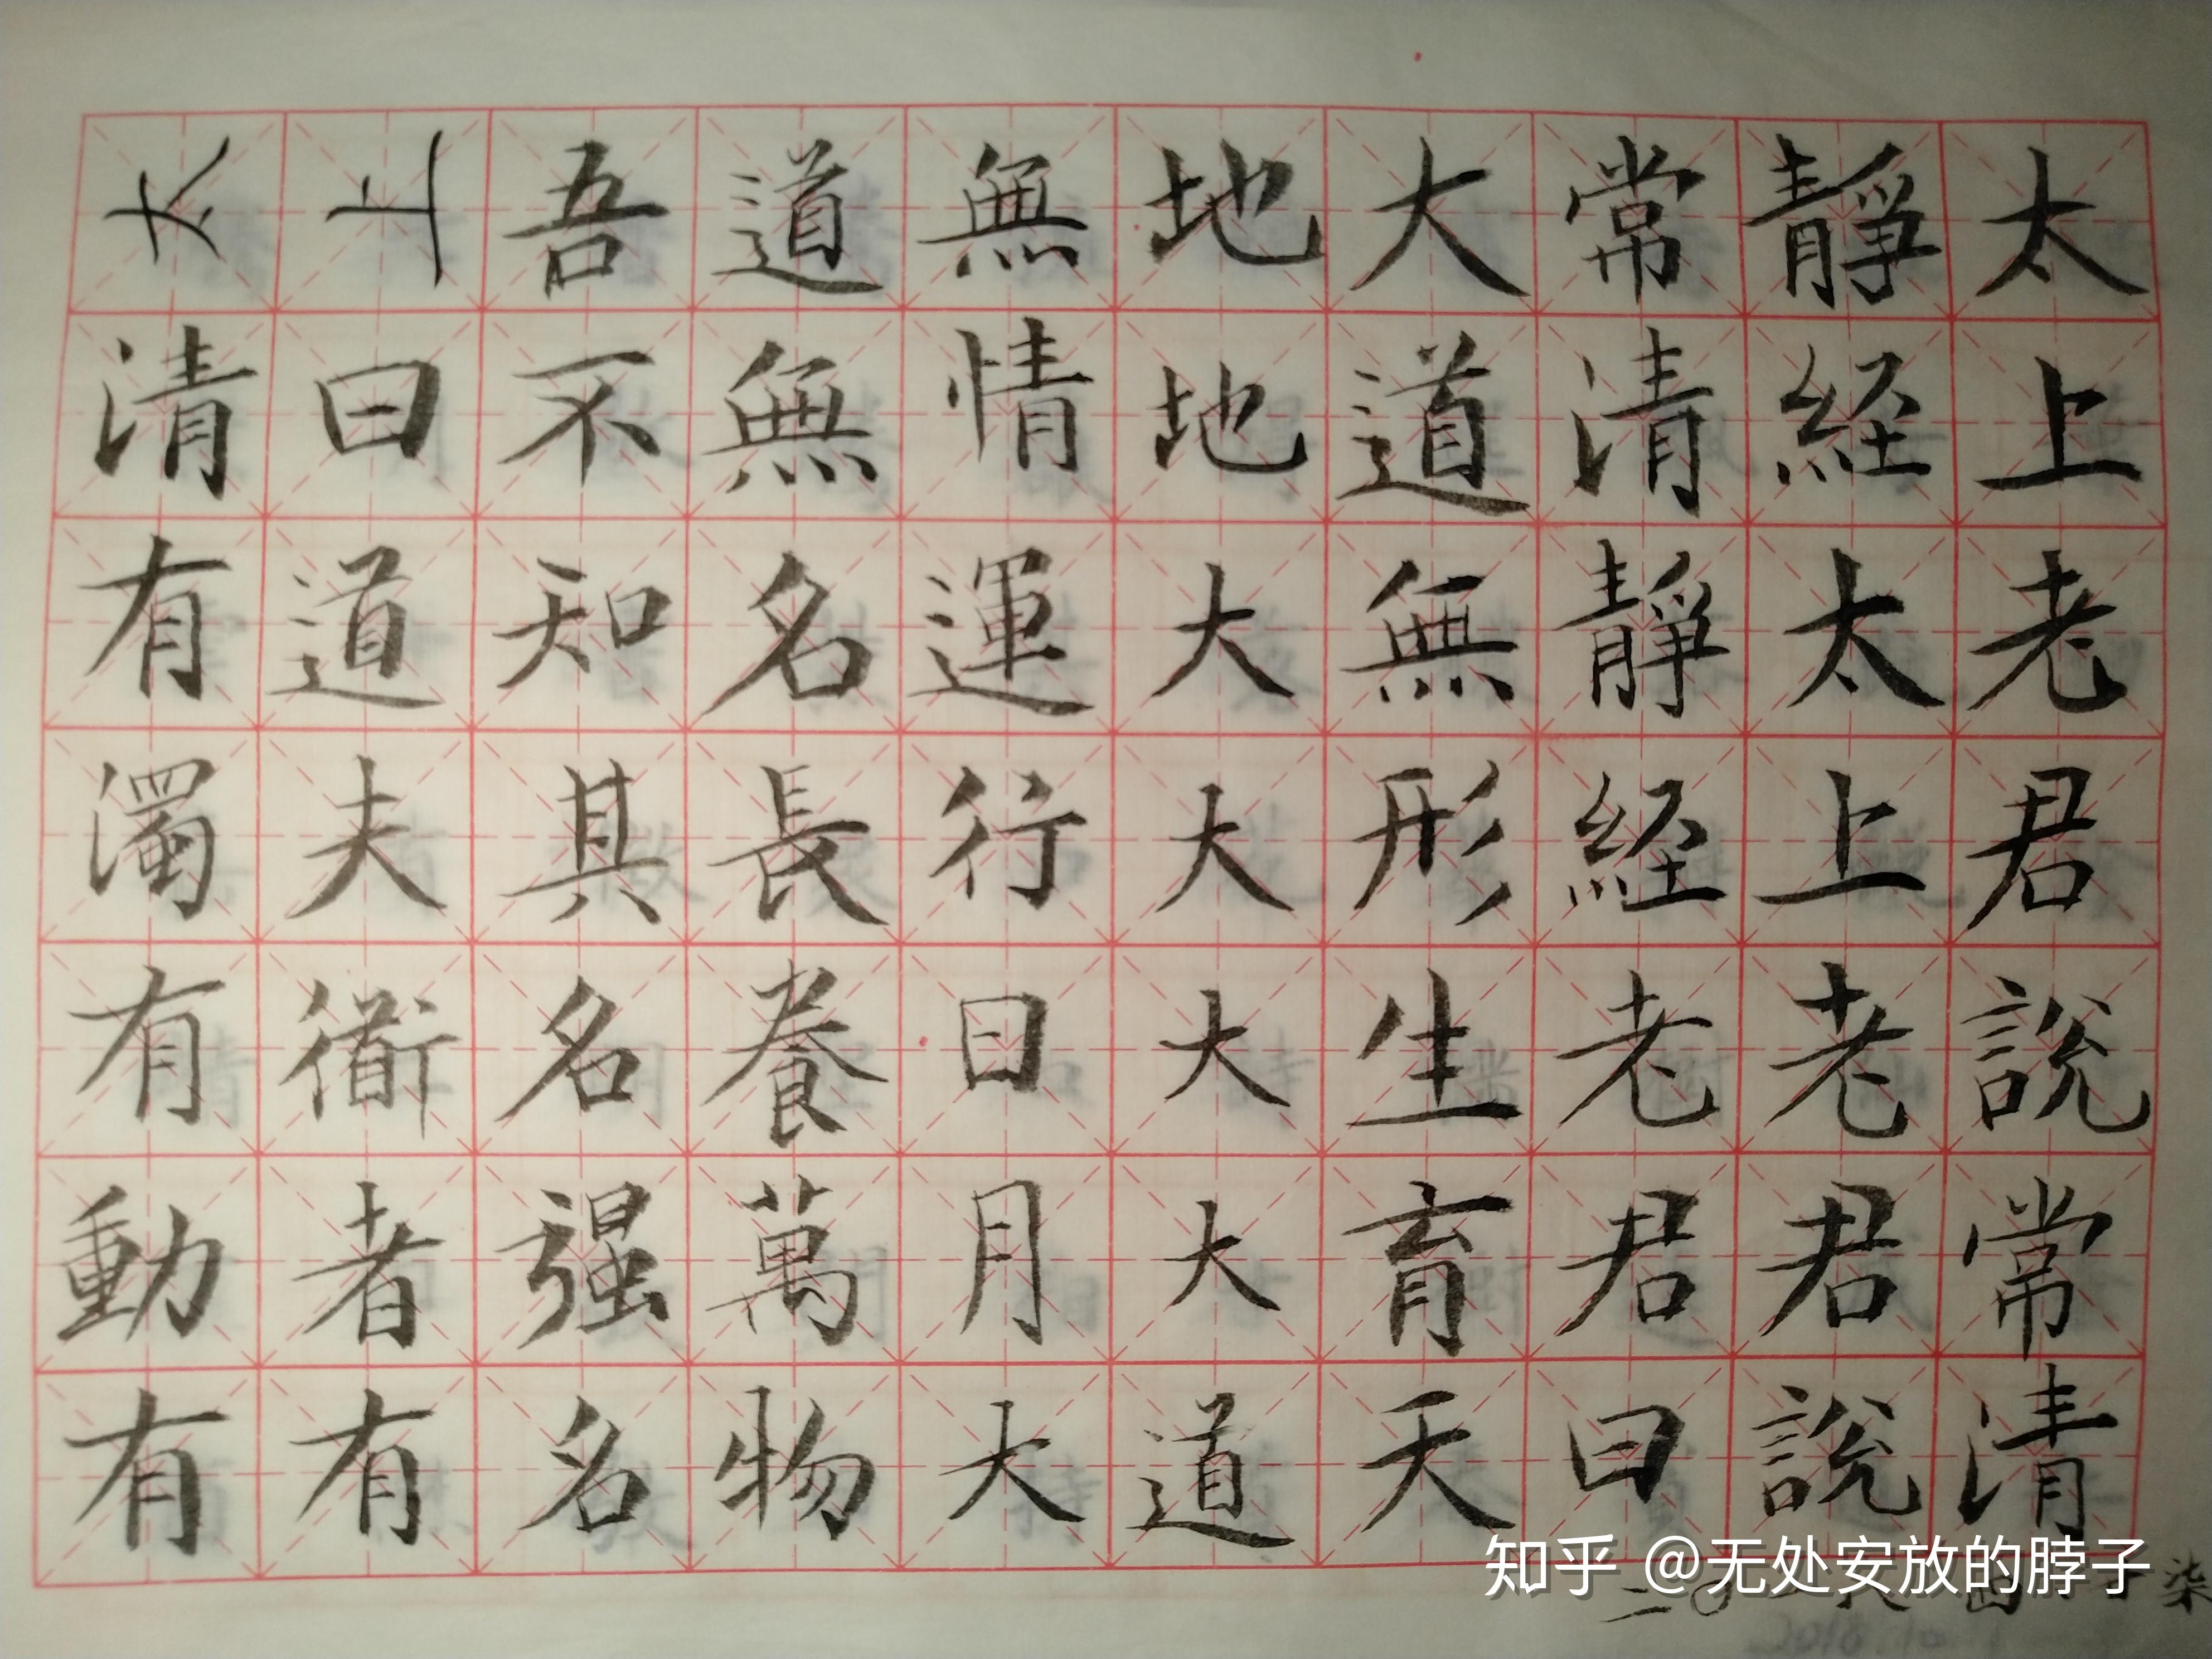 太上老君說常清
靜経太上老君說
常清靜経老君曰
大道無形生育天
地地大大大大道
無情運行日月大
道無名長養萬物
吾不知其名强名
曰道夫衜者有
清有濁有動有
知乎 @无处安放的脖子